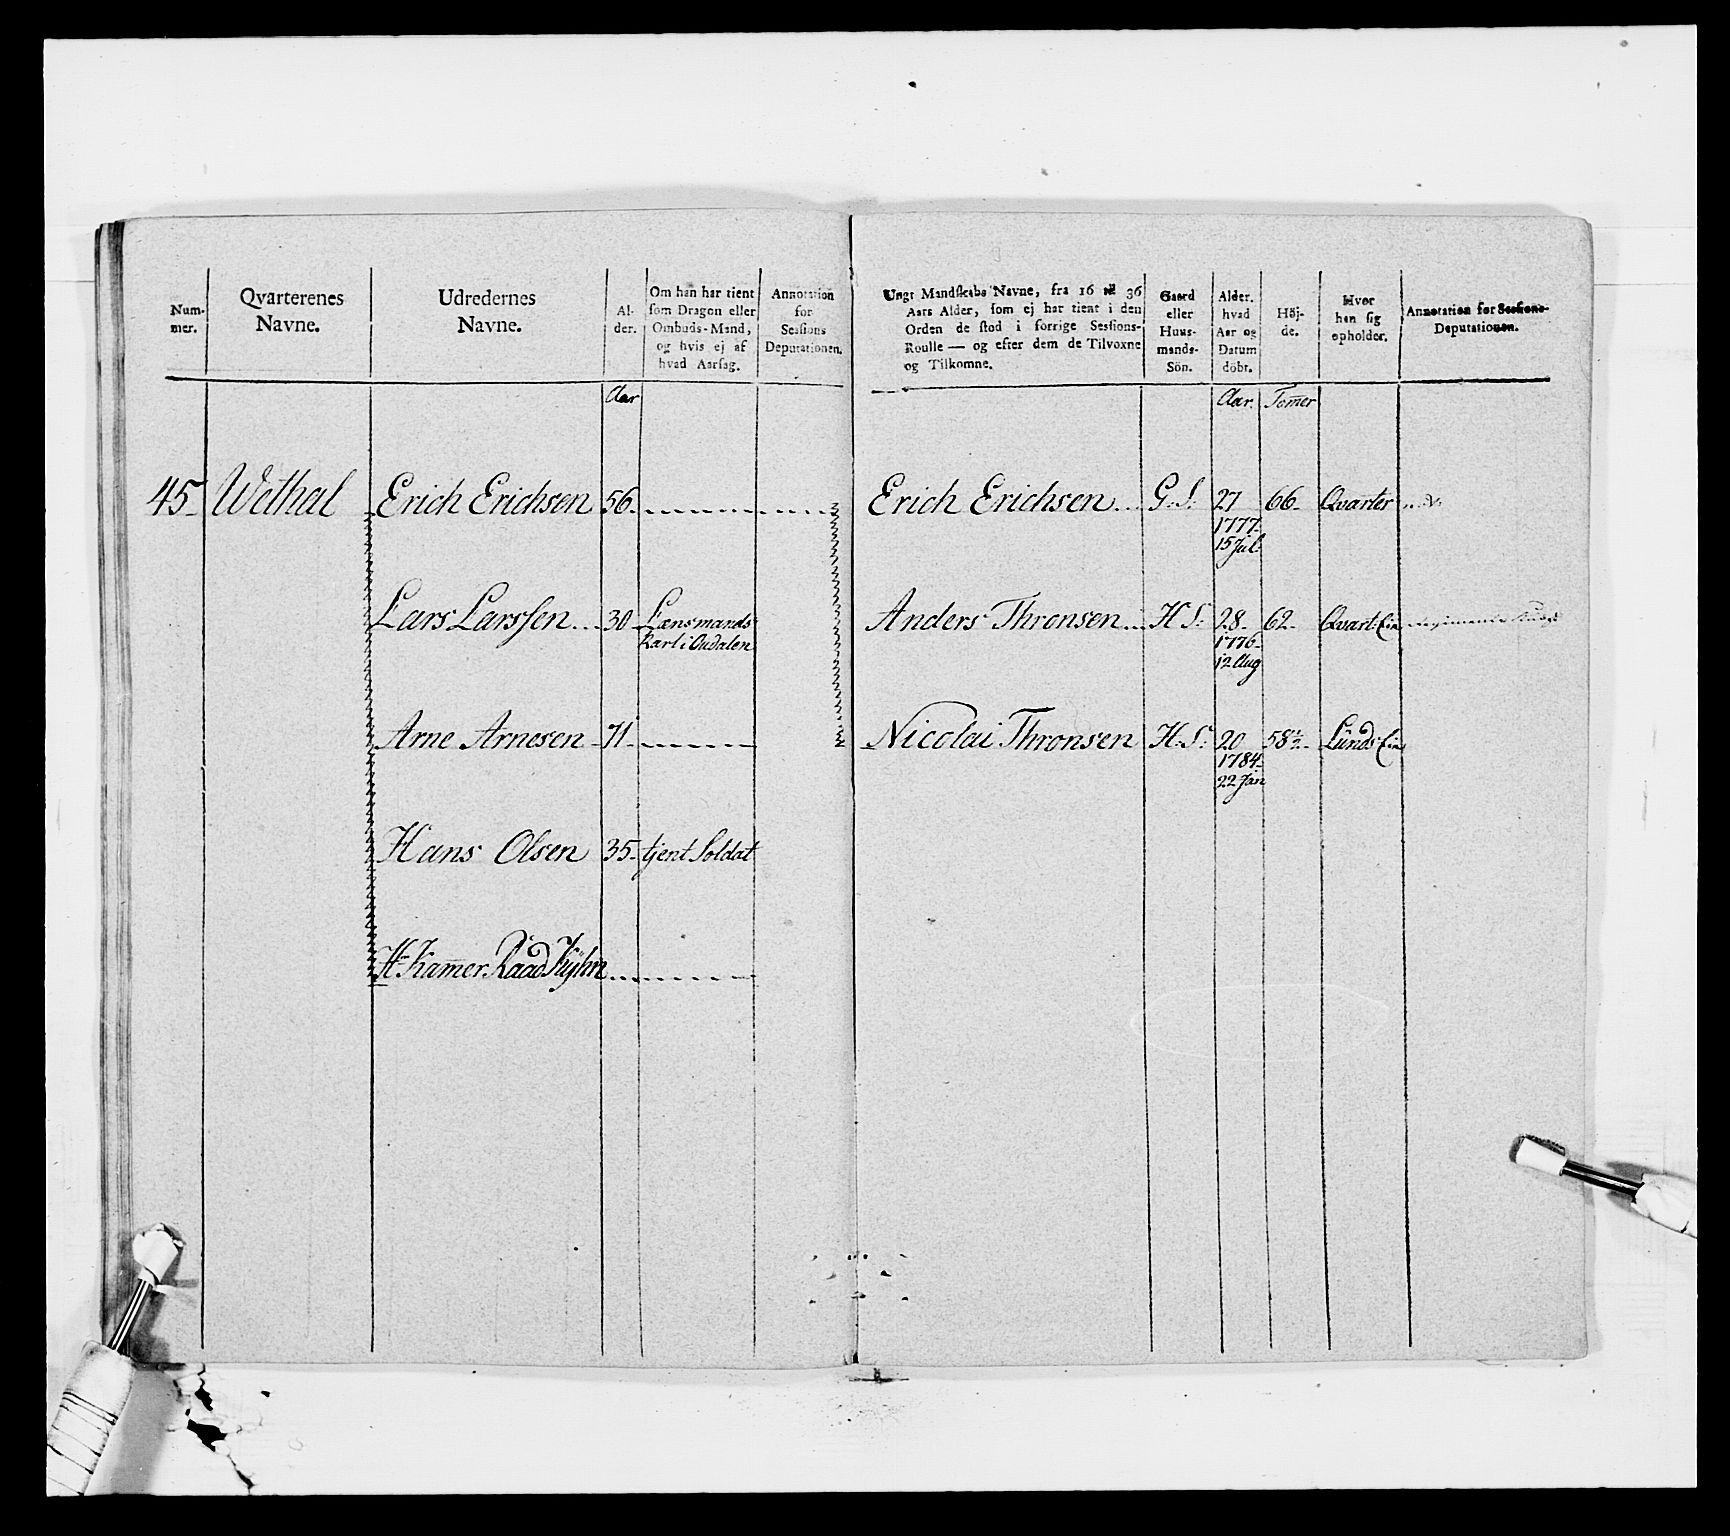 Num-
mer.
Qvarterenes
Navne.
Udredernes
Navne.
Al-
der.
Om han har tient
som Dragon eller
Ombuds-Mand,
og hvis ej af
hvad Aarsag.
Annotation
for
Sessions
Deputationen.
Ungt Mandskabs Navne, fra 16 til 36
Aars Alder, som ej har tient i den
Orden de stod i forrige Sessions-
Roulle — og efter dem de Tilvoxne
og Tilkomne.
Gaard
eller
Huus-
mands-
Sön.
Alder.
hvad
Aar og
Datum
döbt.
Höj-
de.
Hvor
han sig
opholder.
Annotation for Sessions-
Deputationen.
Aar
Aar. Tomer
45 Wethal Erich Erichsen 56 Erich Erichsen G.S. 27 66 Qvarter
1777
15 Jul:
Lars Larssen 30 Lænsmands Anders Thronsen H S. 28 62 Qvart: Ein
Karl i Oudalen 1776
12 Aug
Arne Arnesen 71 Nicolai Thronsen H.S. 20 58½ Lünds Ein
1784
22 Jan
Hans Olsen 35 tjent Soldat
Hr Kamer Raad Kÿhn